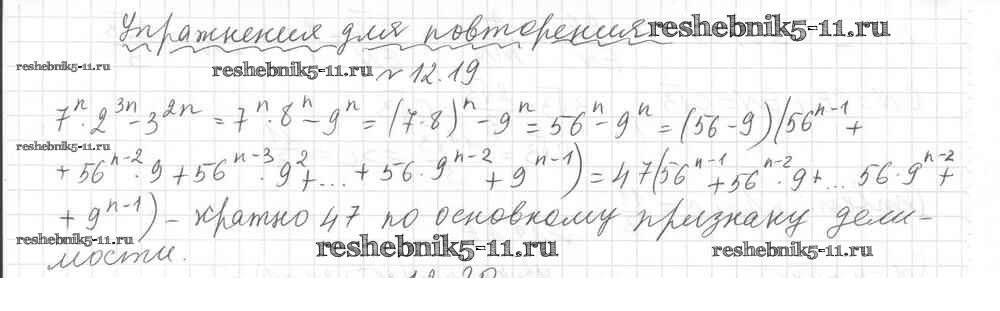 Упражнения для повторения reshebnik5-11.ru
reshebnik5-11.ru reshebnik5-11.ru № 12.19
7ⁿ·2³ⁿ-3²ⁿ = 7ⁿ·8ⁿ-9ⁿ = (7·8)ⁿ-9ⁿ = 56ⁿ-9ⁿ = (56-9)(56ⁿ⁻¹+
reshebnik5-11.ru
+56ⁿ⁻²·9+56ⁿ⁻³·9²+...+56·9ⁿ⁻²+9ⁿ⁻¹) = 47(56ⁿ⁻¹+56ⁿ⁻²·9+... 56·9ⁿ⁻²+
+9ⁿ⁻¹) - кратно 47 по основному признаку дели-
reshebnik5-11.ru reshebnik5-11.ru reshebnik5-11.ru
мости.